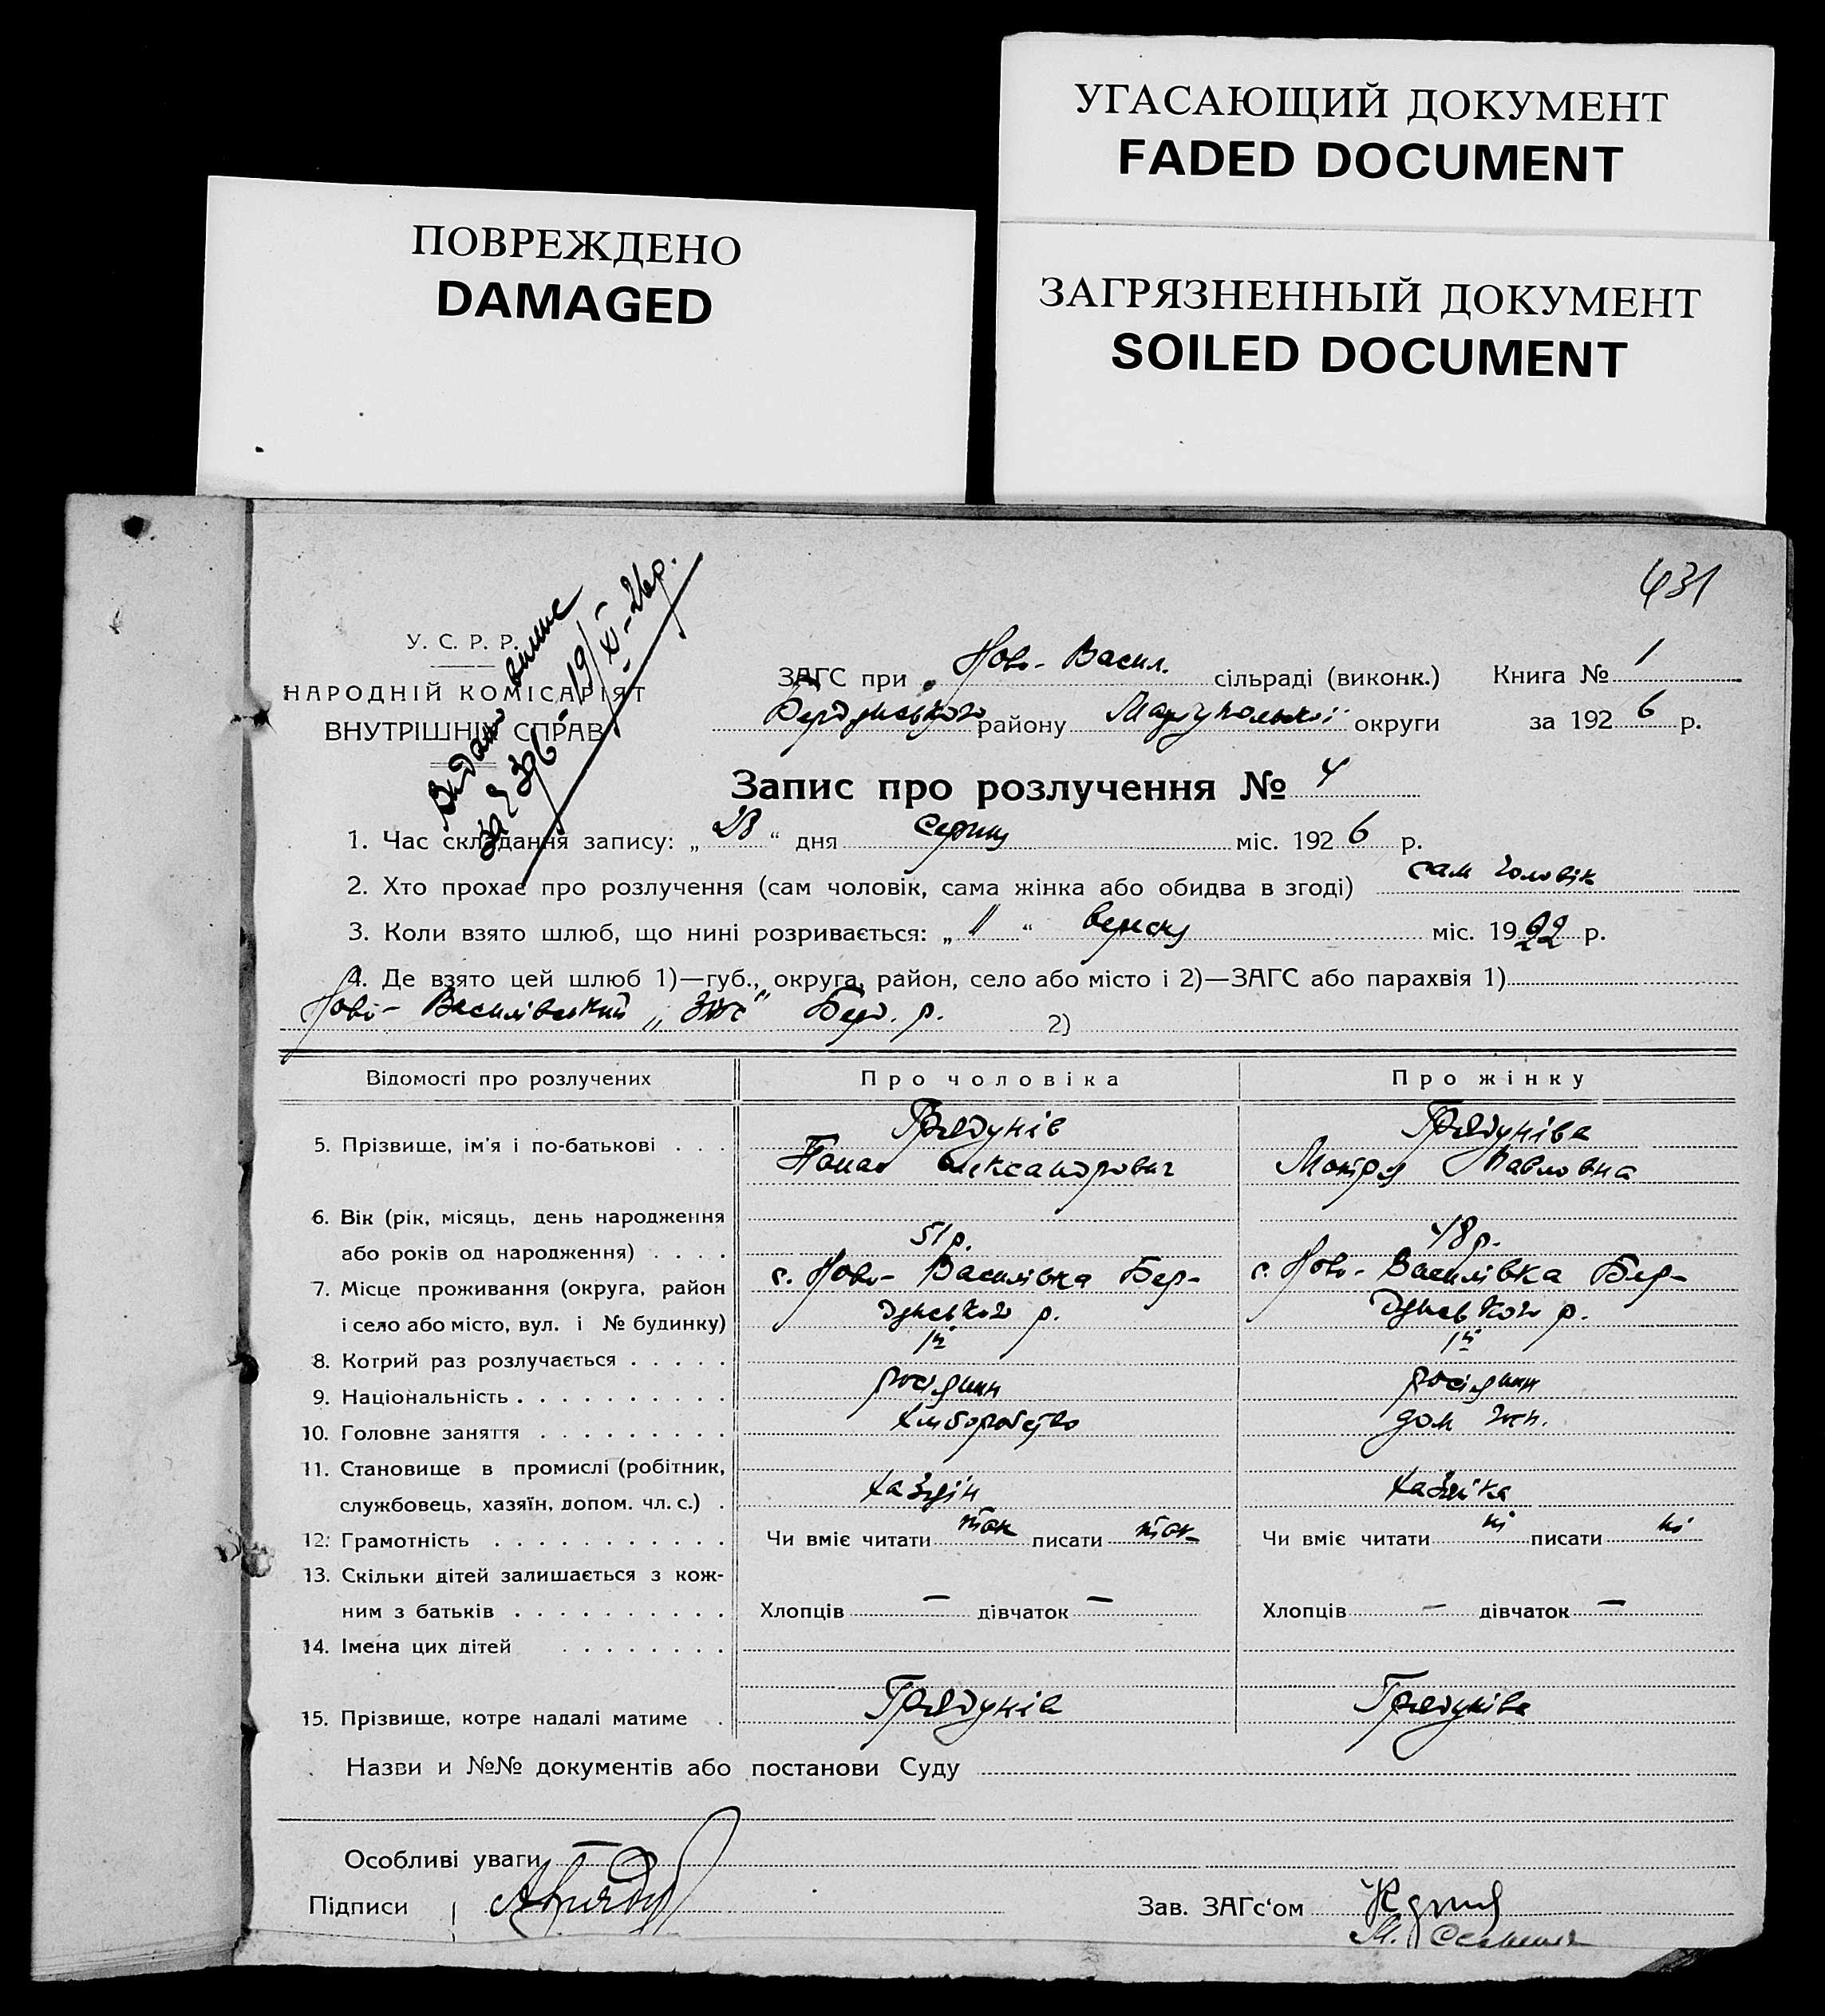 УГАСАЮЩИЙ ДОКУМЕНТ
FADED DOCUMENT
ПОВРЕЖДЕНО
DAMAGED
ЗАГРЯЗНЕННЫЙ ДОКУМЕНТ
SOILED DOCUMENT
431
У. С. Р. Р.
НАРОДНІЙ КОМІСАРІЯТ
ВНУТРІШНІХ СПРАВ
Видано випис
за № 396 19/XI-26р.
ЗАГС при Ново-Васил. сільраді (виконк.) Книга № 1
Бердянського району Маріупольської округи за 1926 р.
Запис про розлучення № 4
1. Час складання запису: „28“ дня серпня міс. 1926 р.
2. Хто прохає про розлучення (сам чоловік, сама жінка або обидва в згоді) сам чоловік
3. Коли взято шлюб, що нині розривається: „11“ вересня міс. 1922 р.
4. Де взято цей шлюб 1)—губ., округа, район, село або місто і 2)—ЗАГС або парахвія 1)
Ново-Василівський „ЗАГС“ Берд. р. 2)
Відомості про розлучених Про чоловіка Про жінку
Грядунів Грядуніва
5. Прізвище, ім'я і по-батькові . . .
Панас Олександрович Мотря Павловна
6. Вік (рік, місяць, день народження
або років од народження) . . . . 51 р. 48 р.
7. Місце проживання (округа, район с. Ново-Василівка Бер- с. Ново-Василівка Бер-
і село або місто, вул. і № будинку) дянського р. дянського р.
8. Котрий раз розлучається . . . . . 1й 1й
9. Національність . . . . . . . . . . росіянин росіянин
10. Головне заняття . . . . . . . . . хліборобство дом. госп.
11. Становище в промислі (робітник,
службовець, хазяїн, допом. чл. с.) . хазяїн хазяйка
12. Грамотність . . . . . . . . . . . Чи вміє читати так писати так Чи вміє читати ні писати ні
13. Скільки дітей залишається з кож-
ним з батьків . . . . . . . . . . Хлопців — дівчаток — Хлопців — дівчаток —
14. Імена цих дітей . . . . . . .
15. Прізвище, котре надалі матиме . Грядунів Грядуніва
Назви и №№ документів або постанови Суду
Особливі уваги —
Підписи Зав. ЗАГс‘ом